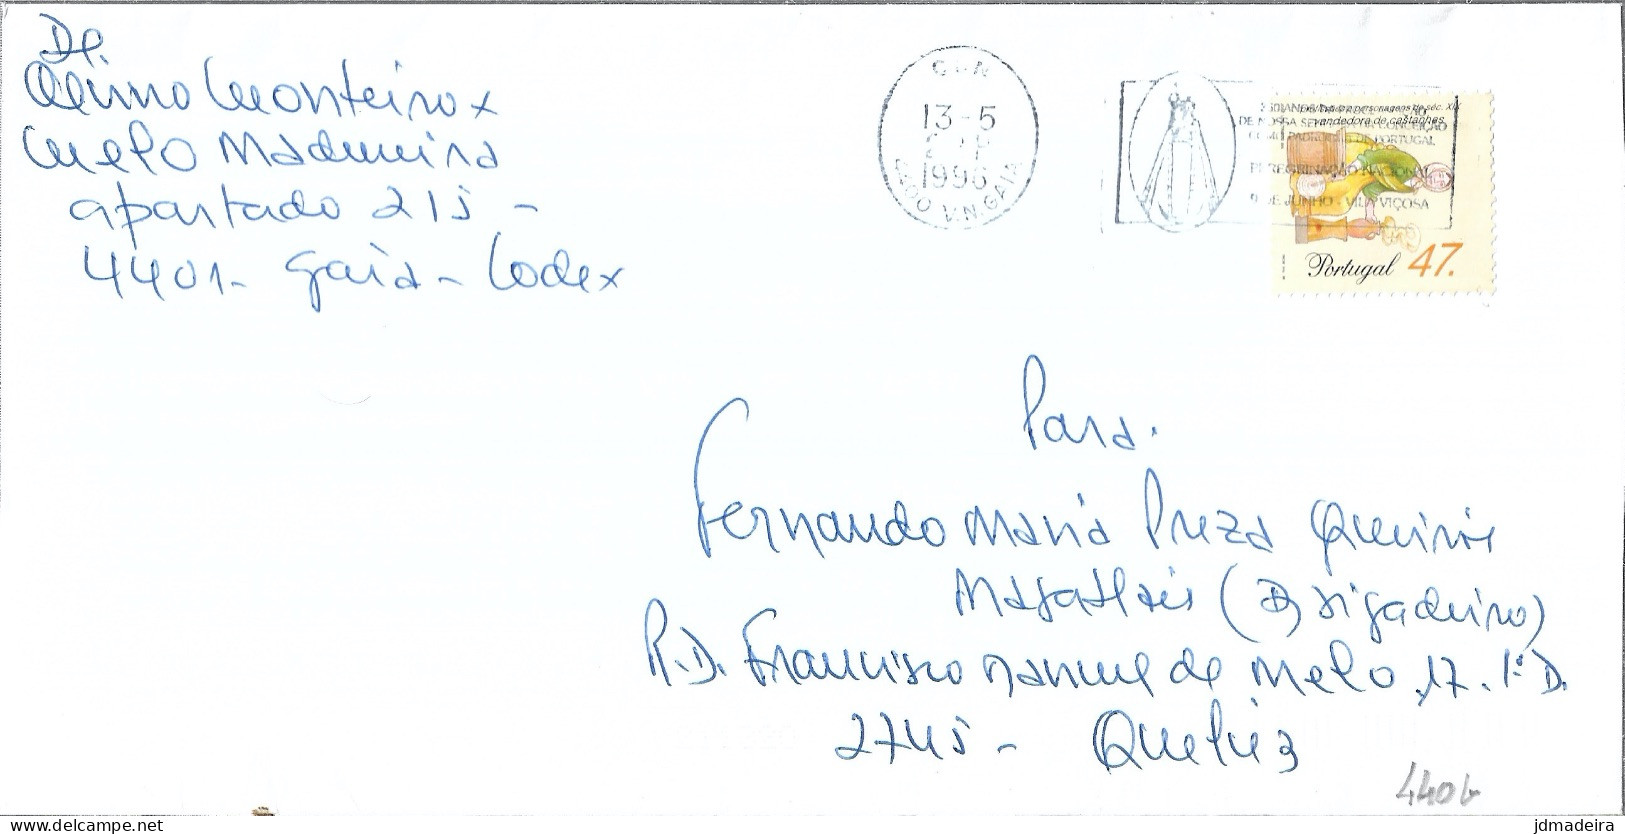 De.
Monteiro
Melo Madureira
apartado 215 -
4401 - Gaia - Codex
13-5
1996
4400 V.N.GAIA
250 ANOS DA PROCLAMAÇÃO
personagens do séc. XIX
vendedora de castanhas
DE NOSSA SENHORA DA CONCEIÇÃO
COMO PADROEIRA DE PORTUGAL
PEREGRINAÇÃO NACIONAL
9 DE JUNHO - VILA VIÇOSA
Portugal 47.
Para.
Fernando Maria Preza Queirós
Magalhães (Brigadeiro)
R.D. Francisco Manuel de Melo, 17. 1º D.
2745 - Queluz
delcampe.net
jdmadeira